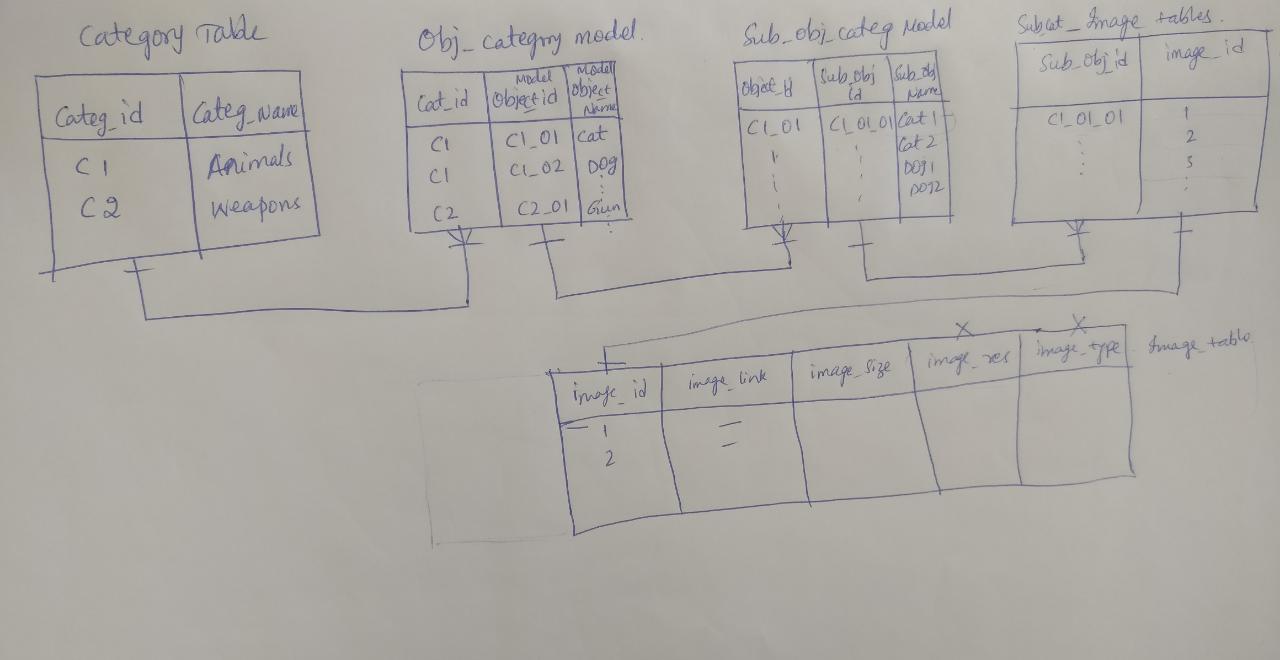 Category Table
Categ_id Categ_Name
C1 Animals
C2 Weapons
Obj_category model.
Cat_id Model Object id Model Object Name
C1 C1_01 Cat
C1 C1_02 Dog
C2 C2_01 Gun
Sub_obj_categ Model
Object_id Sub_Obj id Sub_Obj Name
C1_01 C1_01_01 Cat 1
Cat 2
Dog1
Dog2
Subcat_Image tables.
Sub_Obj_id image_id
C1_01_01 1
2
3
X X
image_id image_link image_size image_res image_type Image_table
1
2